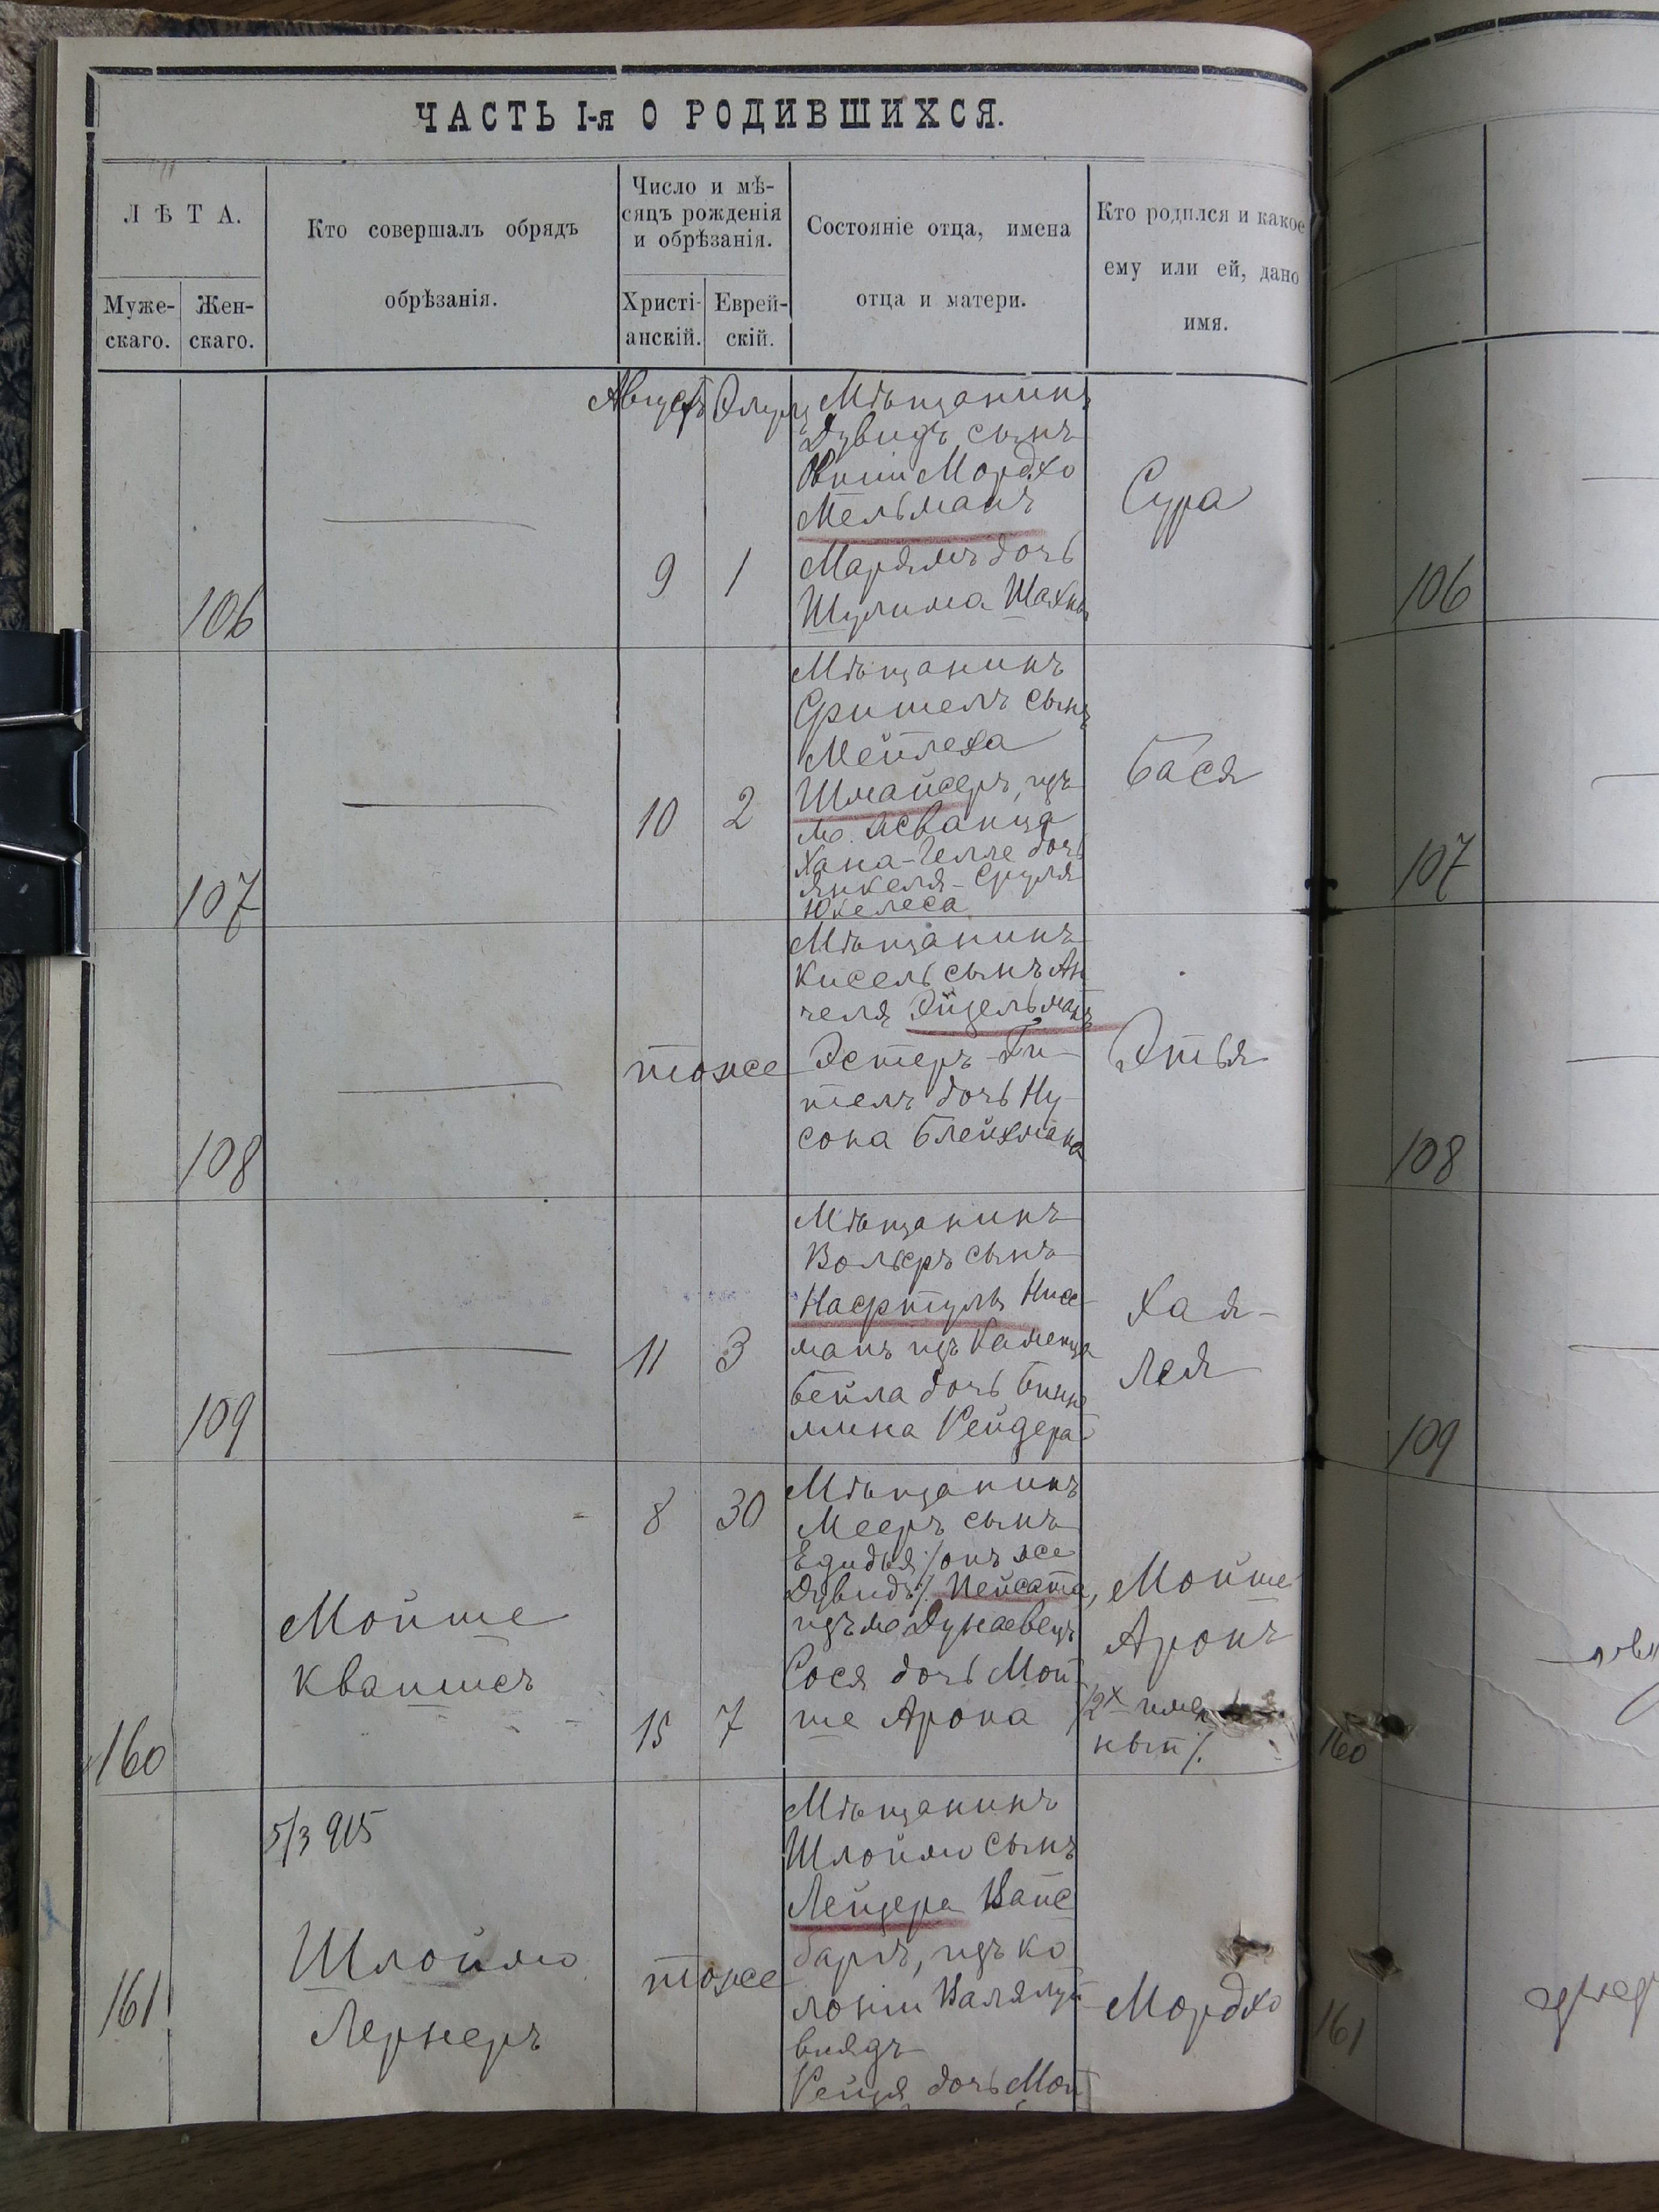 ЧАСТЬ I-я О РОДИВШИХСЯ.
ЛѢТА.
Муже-
скаго.
Жен-
скаго.
Кто совершалъ обрядъ
обрѣзанія.
Число и мѣ-
сяцъ рожденія
и обрѣзанія.
Христі-
анскій.
Еврей-
скій.
Состояніе отца, имена
отца и матери.
Кто родился и какое
ему или ей, дано
имя.
106
Августъ
9
1
Мѣщанинъ
Дувидъ сынъ
Мордхо
Мельманъ
Марьямъ дочь
Шулима Шахны
Сура
106
107
10
2
Мѣщанинъ
Фишелъ сынъ
Мейлеха
Шмайсеръ, изъ
м. Жванца
Хана-Челле дочь
Янкеля-Сруля
Юкелеса
Бася
107
108
тоже
Мѣщанинъ
Кисель сынъ Ан
челя Эйдельманъ
Эстеръ-Ги-
телъ дочь Ну-
сона Блейхмана
Этья
108
109
11
3
Мѣщанинъ
Вольфъ сынъ
Нафтулы Нисе-
манъ изъ Каменца
Бейла дочь Бинье
мина Рейдера
Хая-
Лея
109
160
Мойше
Квапишъ
8
30
15
7
Мѣщанинъ
Мееръ сынъ
Едидья /онъ же
Дувидъ/. Пейсата,
изъ м. Дунаевецъ
Сося дочь Мой
ше Арона
Мойше
Аронъ
/2х имен
ный/.
160
161
5/3 915
Шлоймо
Лернеръ
тоже
Мѣщанинъ
Шлоймо сынъ
Лейзера Вайс
баръ, изъ ко
лоніи
Рейзя дочь Мой
Мордхо
161